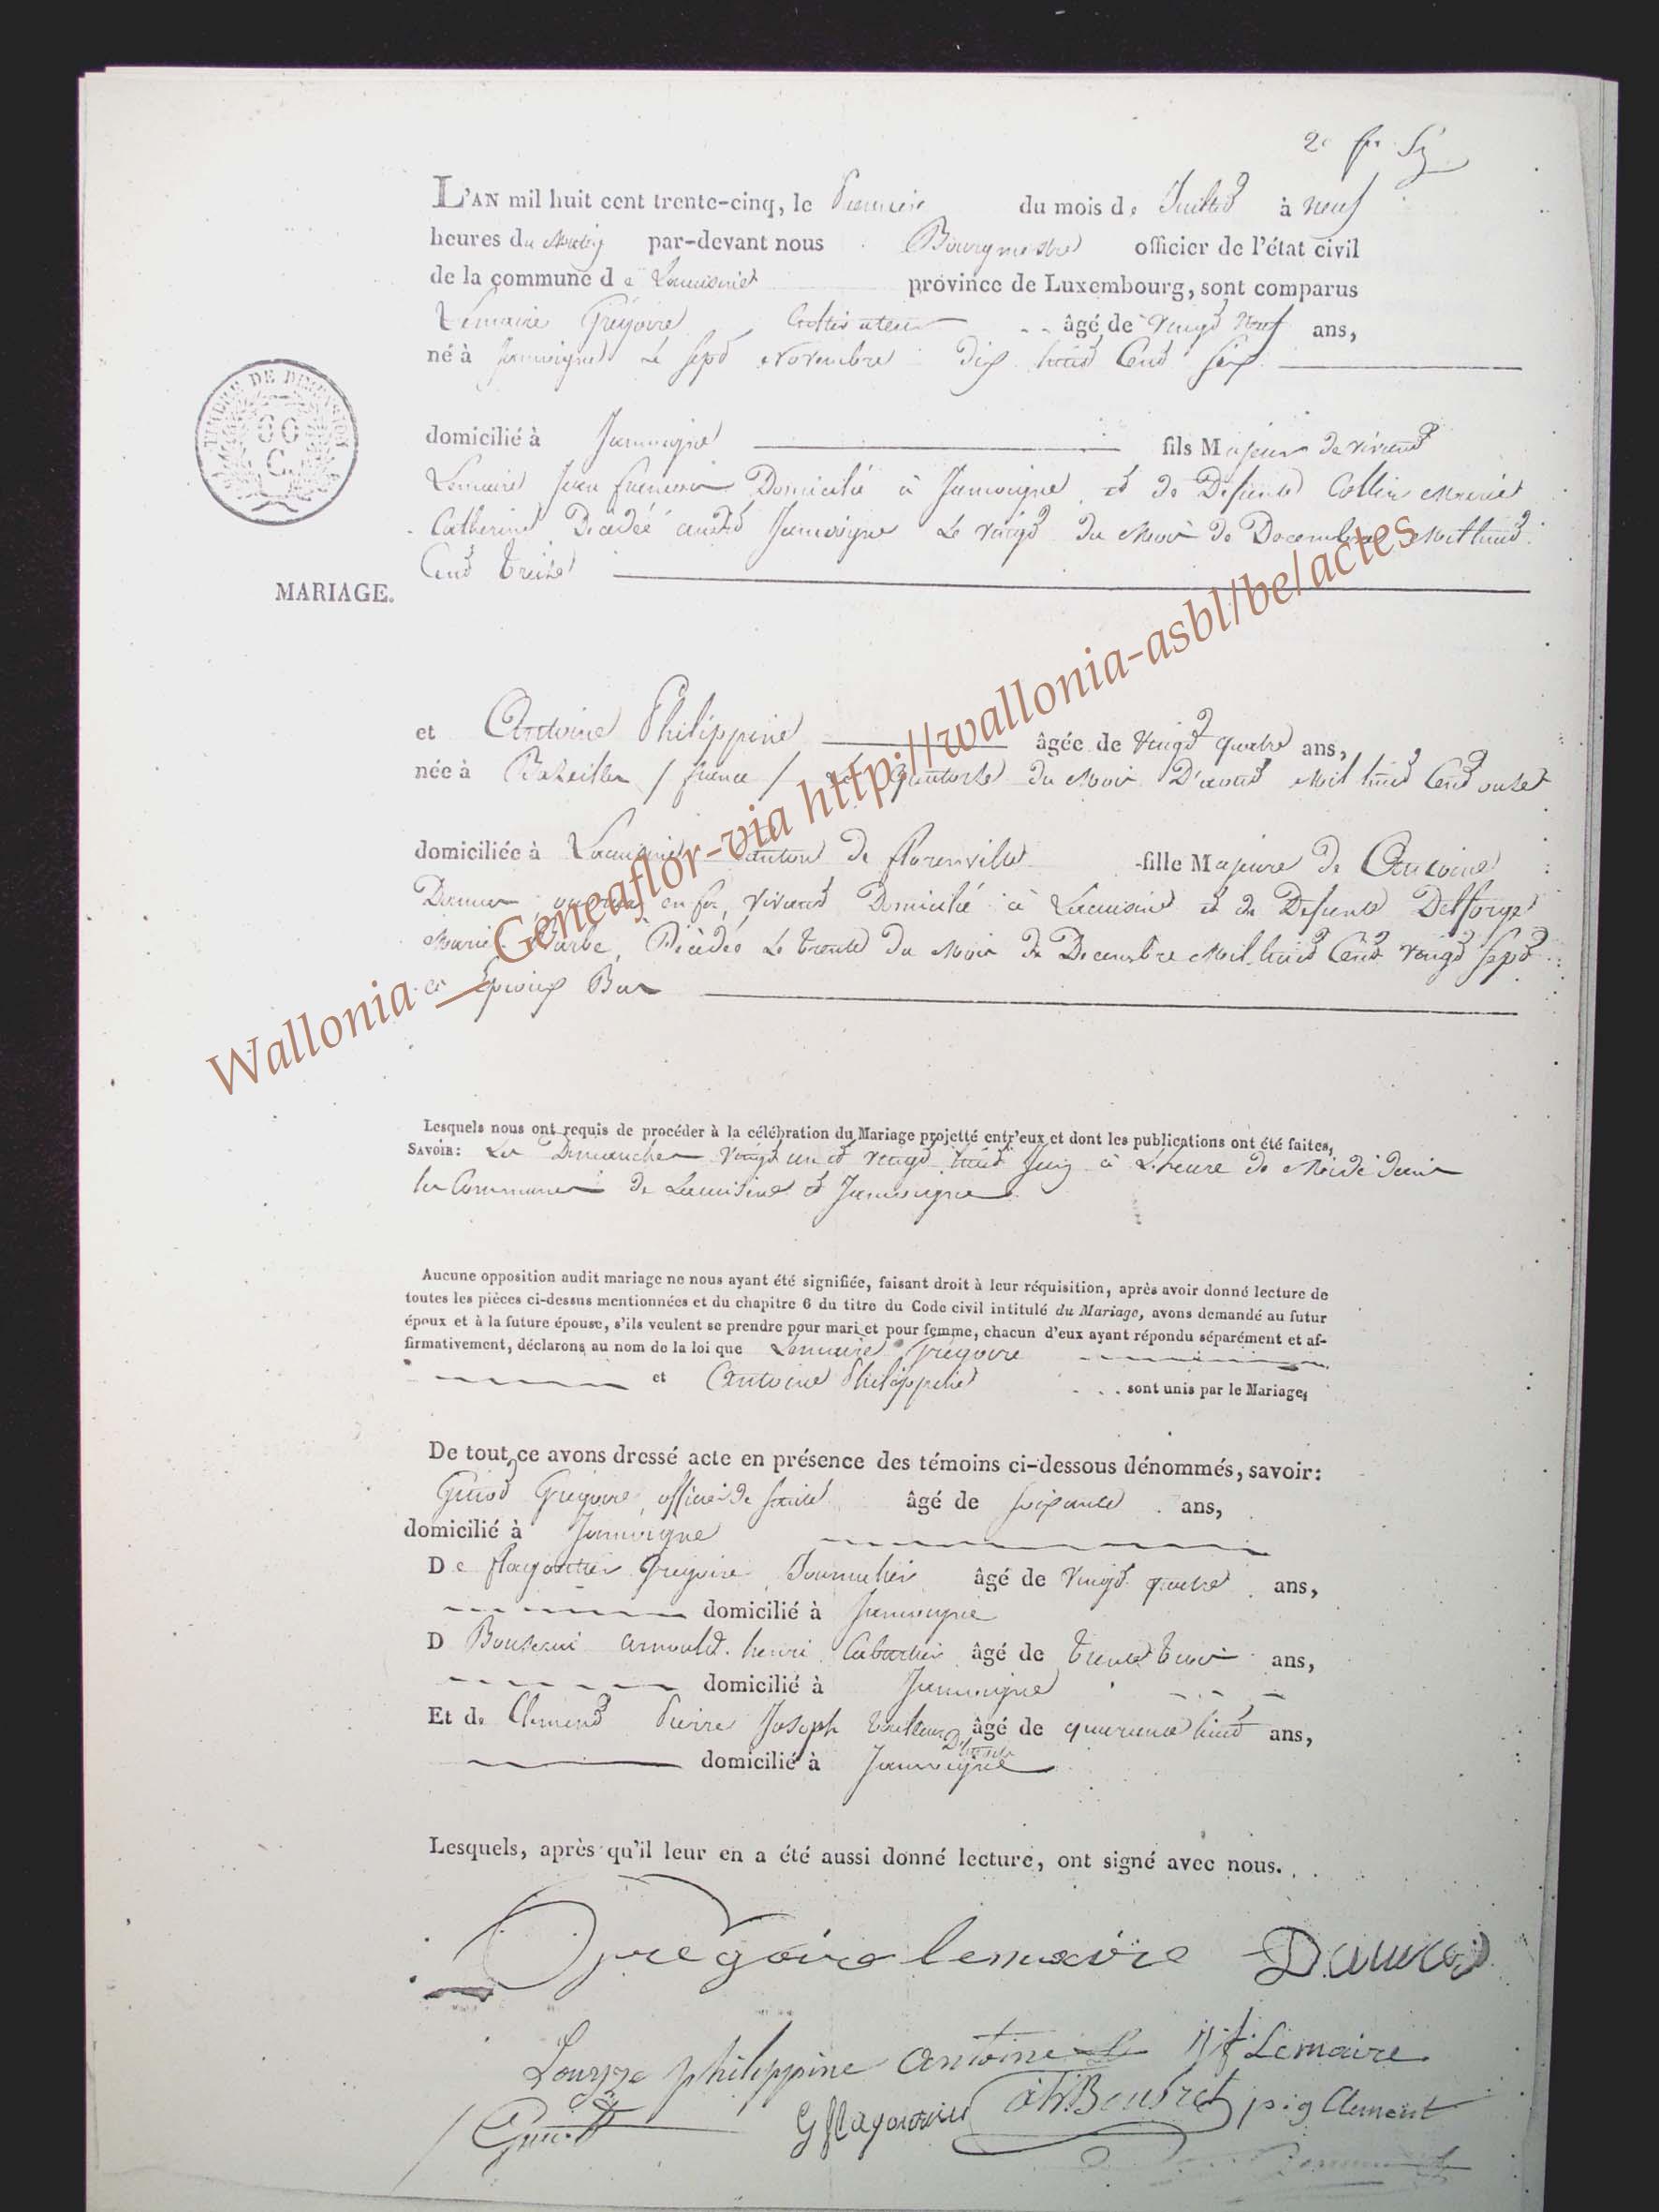 2e fr
L'AN mil huit cent trente-cinq, le Premier du mois de Juillet à neuf
heures du Matin par-devant nous Bourgmestre officier de l'état civil
de la commune de Lacuisine province de Luxembourg, sont comparus
Lemaire Grégoire Cultivateur âgé de vingt Neuf ans,
né à Jamoigne Le sept Novembre dix huit Cent six
TIMBRE DE DIMENSION
C.
domicilié à Jamoigne fils Majeur de vivant
Lemaire Jean francois Domicilié à Jamoigne et de Defunte Collin Marie
Catherine Decedée audit Jamoigne Le vingt du Mois de Decembre Mil huit
Cent treize
MARIAGE.
et Antoine Philippine âgée de vingt quatre ans,
née à Bazeilles / france / Le quatorze du Mois D'aout Mil huit Cent onze
domiciliée à Lacuisine Canton de florenville fille Majeure de Antoine
en fer, vivant Domicilié à Lacuisine et de Defunte Delforge
Marie Barbe, Décédée Le trente du Mois de Decembre Mil huit Cent vingt sept
à Epioux Bas
Lesquels nous ont requis de procéder à la célébration du Mariage projetté entr'eux et dont les publications ont été faites,
SAVOIR: Les Dimanches vingt un et vingt huit Juin à L'heure de Midi dans
les Communes de Lacuisine et Jamoigne
Aucune opposition audit mariage ne nous ayant été signifiée, faisant droit à leur réquisition, après avoir donné lecture de
toutes les pièces ci-dessus mentionnées et du chapitre 6 du titre du Code civil intitulé du Mariage, avons demandé au futur
époux et à la future épouse, s'ils veulent se prendre pour mari et pour femme, chacun d'eux ayant répondu séparément et af-
firmativement, déclarons au nom de la loi que Lemaire Grégoire
et Antoine Philippine sont unis par le Mariage;
De tout ce avons dressé acte en présence des témoins ci-dessous dénommés, savoir:
Guiot Gregoire officier de santé âgé de soixante ans,
domicilié à Jamoigne
De Gregoire Journalier âgé de vingt quatre ans,
domicilié à Jamoigne
D arnould henri Cabartier âgé de trente trois ans,
domicilié à Jamoigne
Et de Clement Pierre Joseph âgé de quarante huit ans,
domicilié à Jamoigne
Lesquels, après qu'il leur en a été aussi donné lecture, ont signé avec nous.
Gregoire lemaire
philippine antoine Lemaire
Guiot Clement
Wallonia - Geneaflor-via http://wallonia-asbl/be/actes